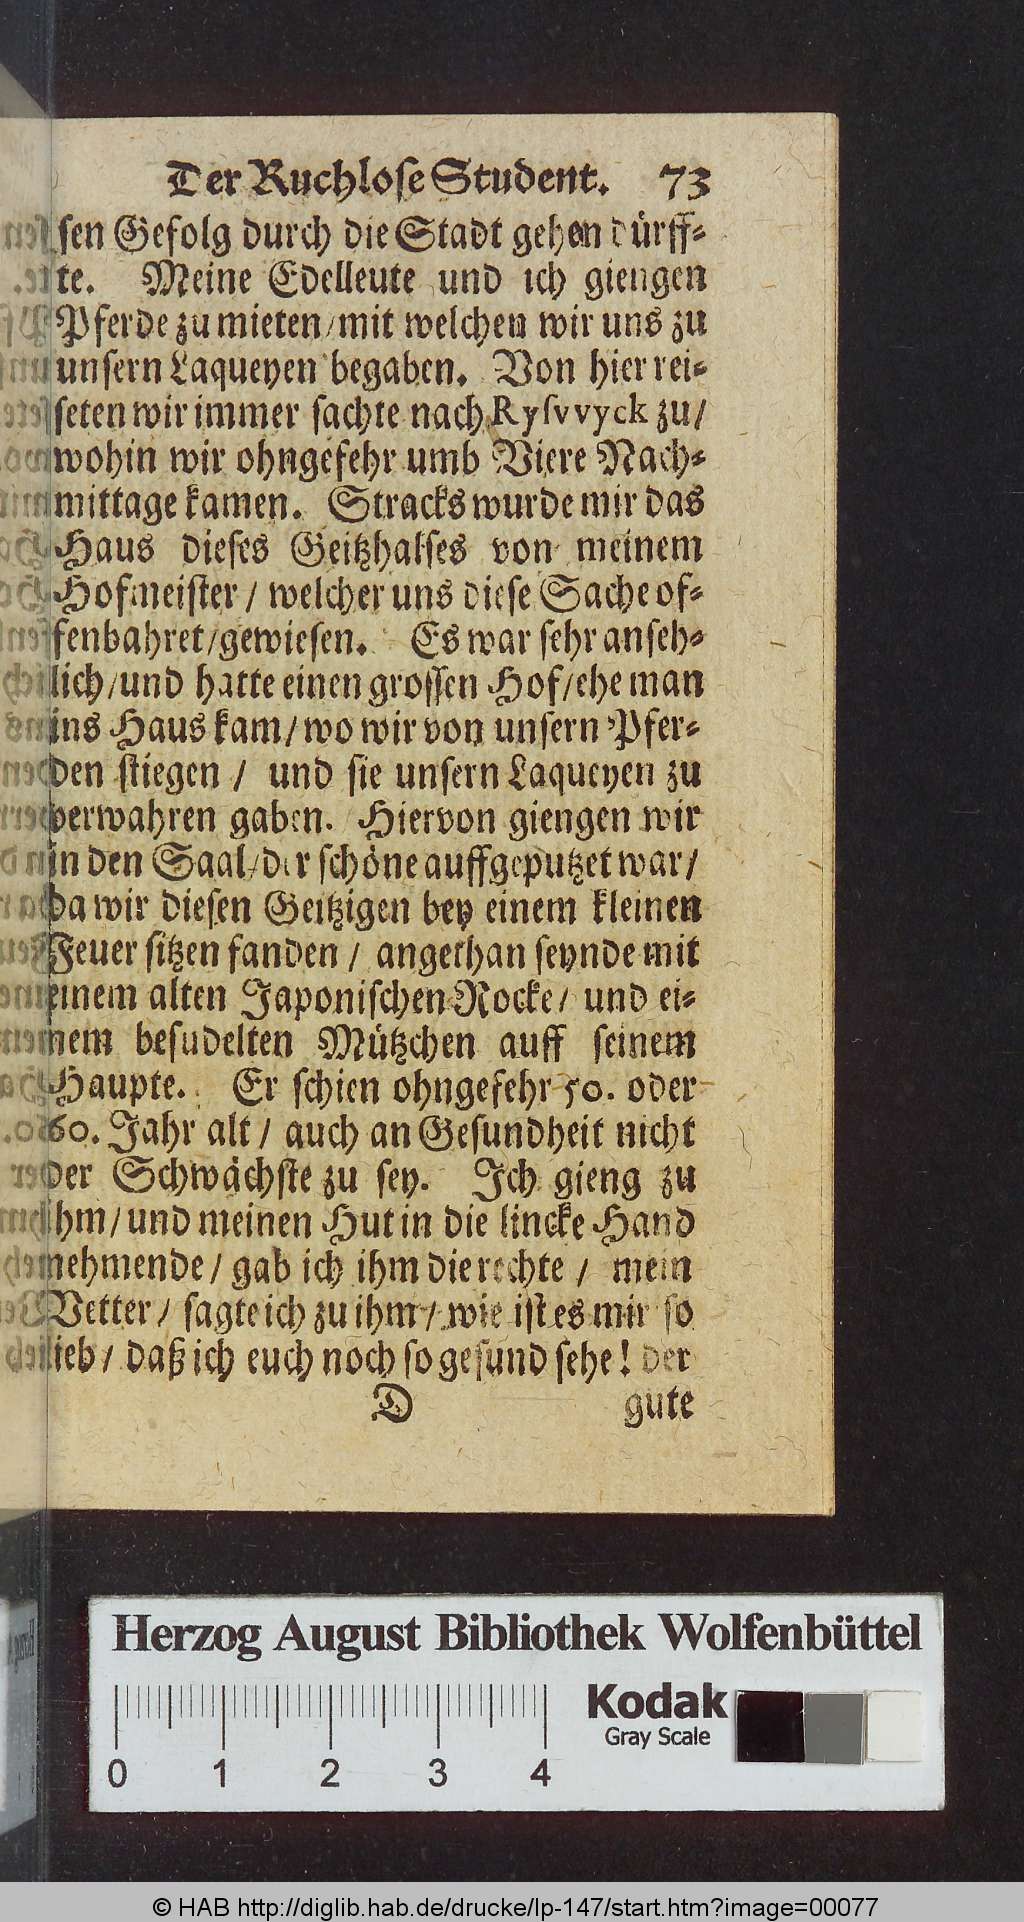 Der Ruchlose Student. 73
sen Gefolg durch die Stadt gehen dürff-
te. Meine Edelleute und ich giengen
Pferde zu mieten/mit welchen wir uns zu
unsern Laqueyen begaben. Von hier rei-
seten wir immer sachte nach Rysvvyck zu/
wohin wir ohngefehr umb Viere Nach-
mittage kamen. Stracks wurde mir das
Haus dieses Geitzhalses von meinem
Hofmeister / welcher uns diese Sache of-
fenbahret/gewiesen. Es war sehr anseh-
lich/und hatte einen grossen Hof/ehe man
ins Haus kam/wo wir von unsern Pfer-
den stiegen / und sie unsern Laqueyen zu
verwahren gaben. Hiervon giengen wir
in den Saal/der schöne auffgeputzet war/
da wir diesen Geitzigen bey einem kleinen
Feuer sitzen fanden / angethan seynde mit
einem alten Japonischen Rocke/ und ei-
nem besudelten Mützchen auff seinem
Haupte. Er schien ohngefehr 50. oder
60. Jahr alt / auch an Gesundheit nicht
der Schwächste zu sey. Ich gieng zu
ihm/und meinen Hut in die lincke Hand
nehmende / gab ich ihm die rechte / mein
Vetter / sagte ich zu ihm / wie ist es mir so
lieb / daß ich euch noch so gesund sehe! der
D gute
Herzog August Bibliothek Wolfenbüttel
Kodak
Gray Scale
0 1 2 3 4
© HAB http://diglib.hab.de/drucke/lp-147/start.htm?image=00077